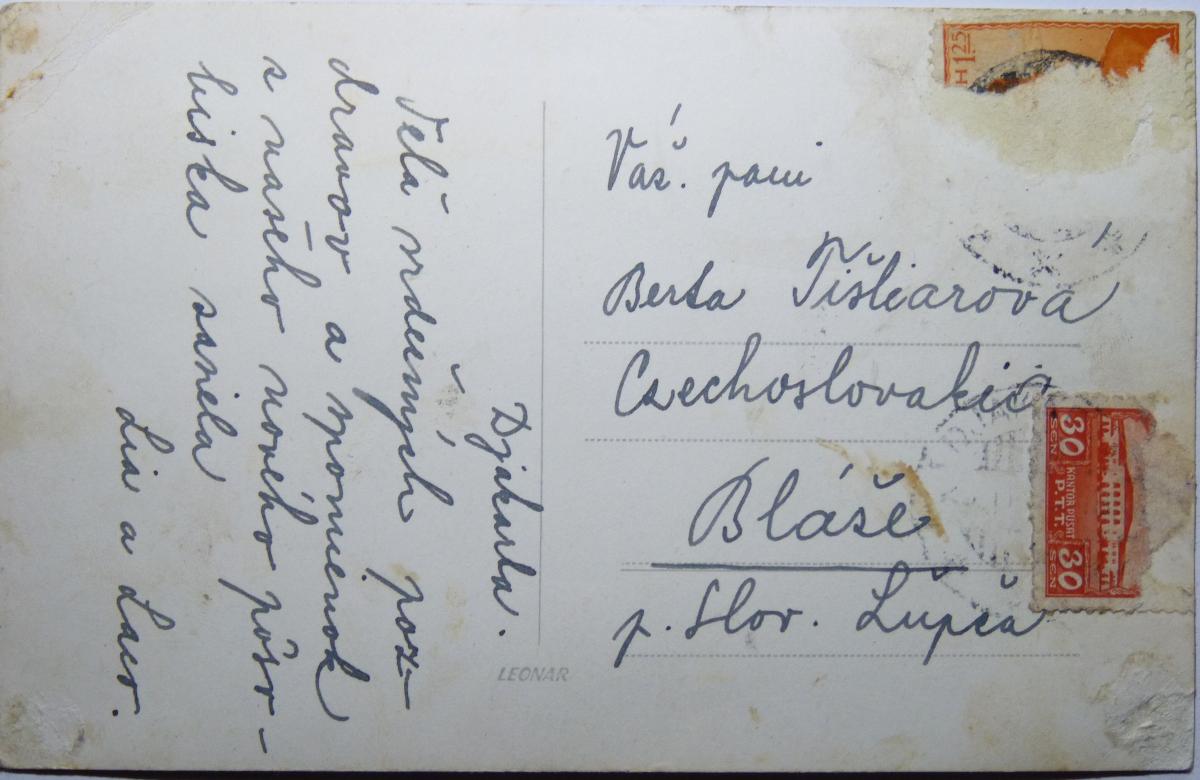 Djakarta.
Veľa srdečných poz-
dravov a spomienok
z nášeho nového pôso-
biska sasiela
Lia a Laco.
Váž. pani
Berta Tišliarova
Czechoslovakia
Blaše
p. Slov. Lupča
LEONAR
H 1.25
30
SEN
KANTOR PUSAT
P.T.T.
30
SEN